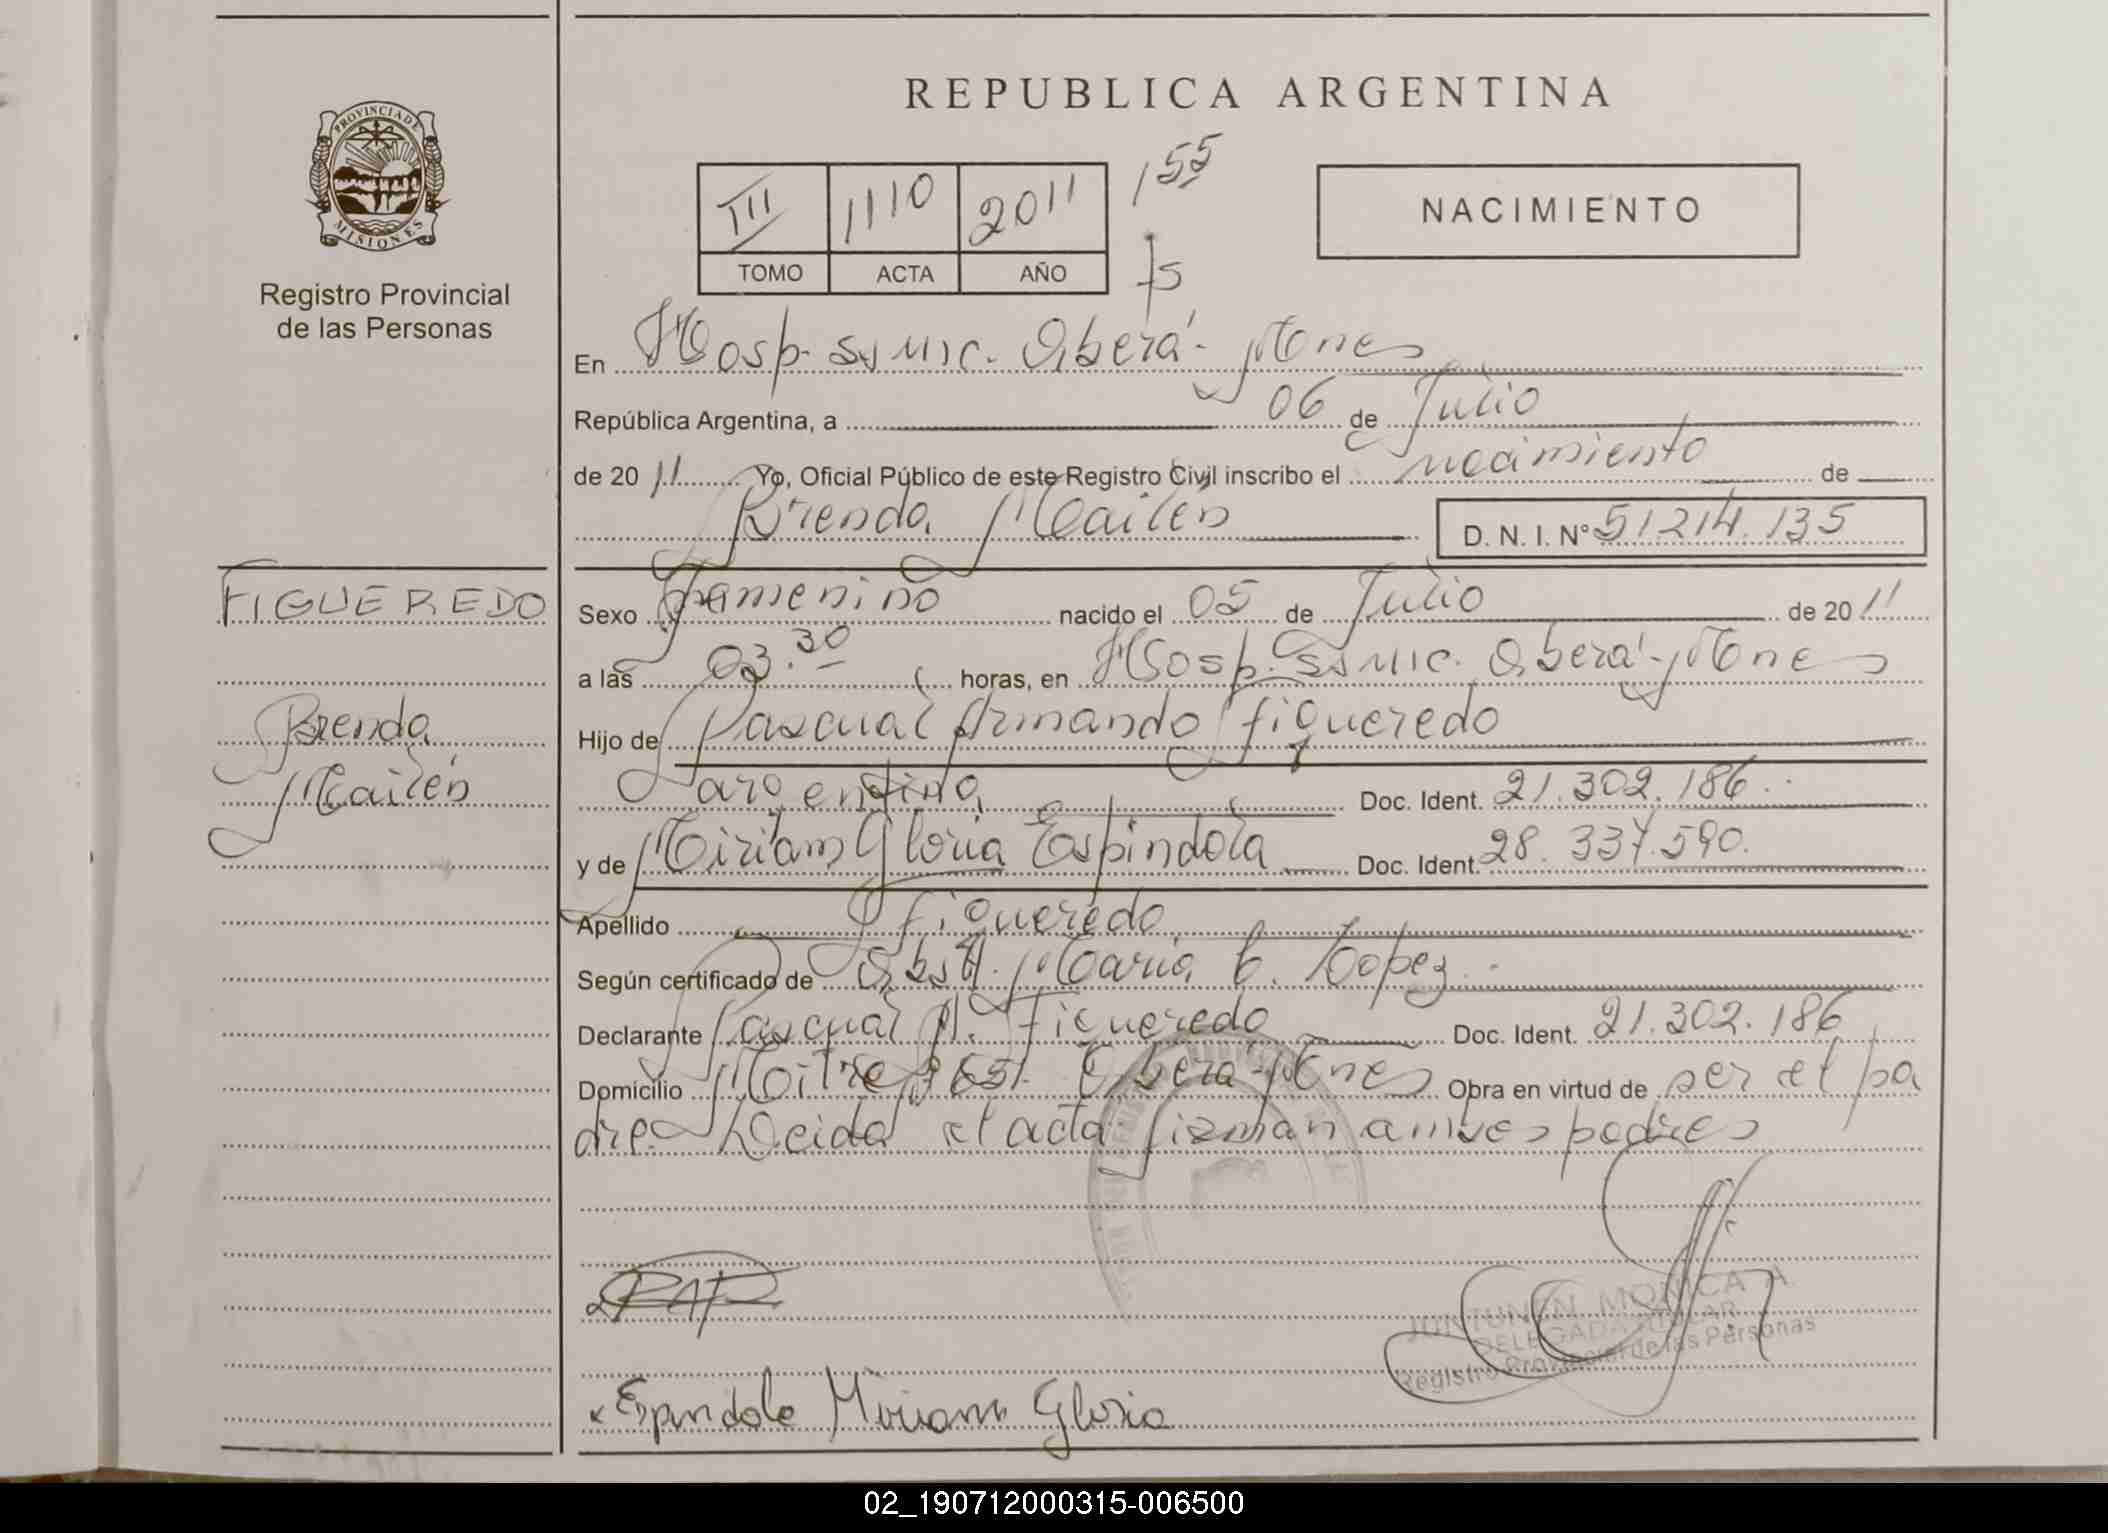 REPUBLICA ARGENTINA
PROVINCIA DE
MISIONES
Registro Provincial
de las Personas
III 1110 2011 155
TOMO ACTA AÑO
NACIMIENTO
En Hosp. ss mic. Oberá - Mones
República Argentina, a 06 de Julio
de 20 11 Yo, Oficial Público de este Registro Civil inscribo el nacimiento de
Brenda Mailén D. N. I. N° 51.214.135
FIGUEREDO
Brenda
Mailén
Sexo Femenino nacido el 05 de Julio de 20 11
a las 03.30 horas, en Hosp. ss mic. Oberá - Mones
Hijo de Pascual Armando Figueredo
argentina Doc. Ident. 21.302.186.
y de Miriam Gloria Espindola Doc. Ident. 28.337.590.
Apellido Figueredo
Según certificado de Obst. María C. Lopez.
Declarante Pascual A. Figueredo Doc. Ident. 21.302.186
Domicilio Mitre Oberá - Mones Obra en virtud de ser el pa
dre Leida el acta firman ambos padres
JUNTUNEN MONICA A.
DELEGADA TITULAR
Registro Provincial de las Personas
Espindola Miriam Gloria
02_190712000315-006500